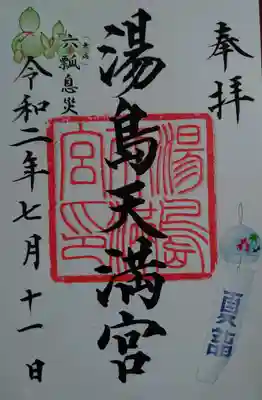 奉拝
湯島天満宮
湯島天満宮印
六瓢息災
令和二年七月十一日
夏詣